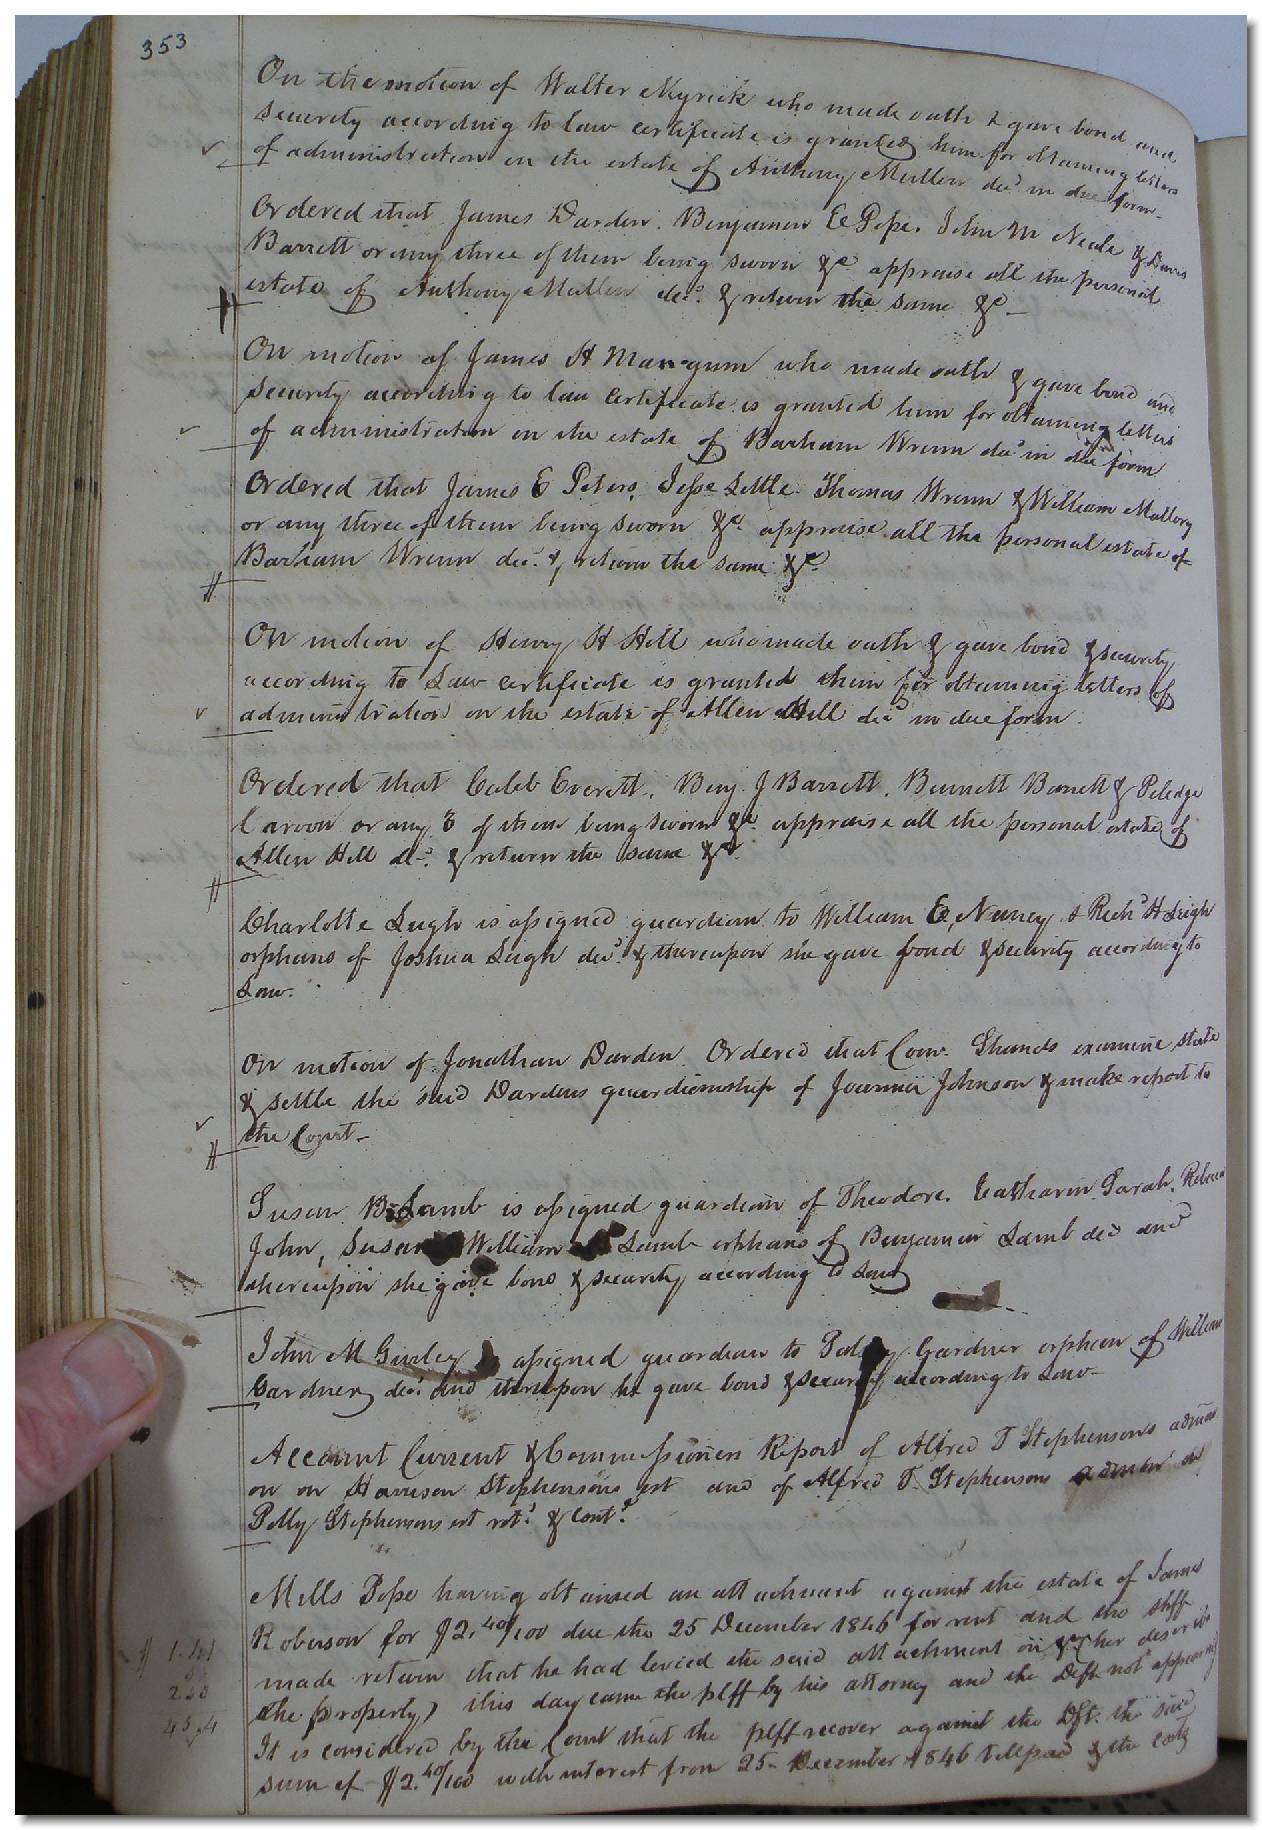 353
On the motion of Walter Myrick who made oath & gave bond and
security according to law certificate is granted him for obtaining letters
of administration on the estate of Anthony Mullen decd in due form-
Ordered that James Darden. Benjamin E Pope. John M Neale &
Barrett or any three of them being sworn &c appraise all the personal
estate of Anthony Mullen decd. & return the same &c -
On motion of James H Mangum who made oath & gave bond and
security according to law certificate is granted him for obtaining letters
of administration on the estate of Barham Wrenn decd in due form
Ordered that James E Peters, Jesse Little. Thomas Wrenn & William Mallory
or any three of them being sworn &c. appraise all the personal estate of
Barham Wrenn decd. & return the same &c.
On motion of Henry H Hill who made oath & gave bond & security
according to Law certificate is granted him for obtaining letters of
administration on the estate of Allen Hill decd in due form.
Ordered that Caleb Everett. Benj. J Barrett. Burnett Barrett &
or any 3 of them being sworn &c. appraise all the personal estate of
Allen Hill decd. & return the same &c.
Charlotte Leigh is assigned guardian to William E, Nancy & Richd H Leigh
orphans of Joshua Leigh decd. & thereupon she gave bond & security according to
Law.
On motion of Jonathan Darden Ordered that Comr. Shands examine state
& settle the said Dardens guardianship of Joanna Johnson & make report to
the Court-
Susan B Lamb is assigned guardian of Theodore. Catharin Sarah, Rebecca
John, Susan William Lamb orphans of Benjamin Lamb decd and
thereupon she gave bond & security according to Law
John M Gurley is assigned guardian to Gardner orphan of William
Gardner decd. and thereupon he gave bond & security according to Law-
Account Current & Commissioners Report of Alfred T Stephensons admor
on on Harrison Stephensons est and of Alfred T. Stephensons admor on
Polly Stephensons est retd. & contd.
Mills Pope having obtained an attachment against the estate of James
Roberson for $2.40/100 due the 25 December 1846 for rent and the shff
made return that he had levied the said attachment on &c (her describe
the property) this day came the plff by his attorney and the Deft not appearing
It is considered by the Court that the plff recover against the Dft. the said
sum of $2.40/100 with interest from 25- December 1846 till paid & the costs